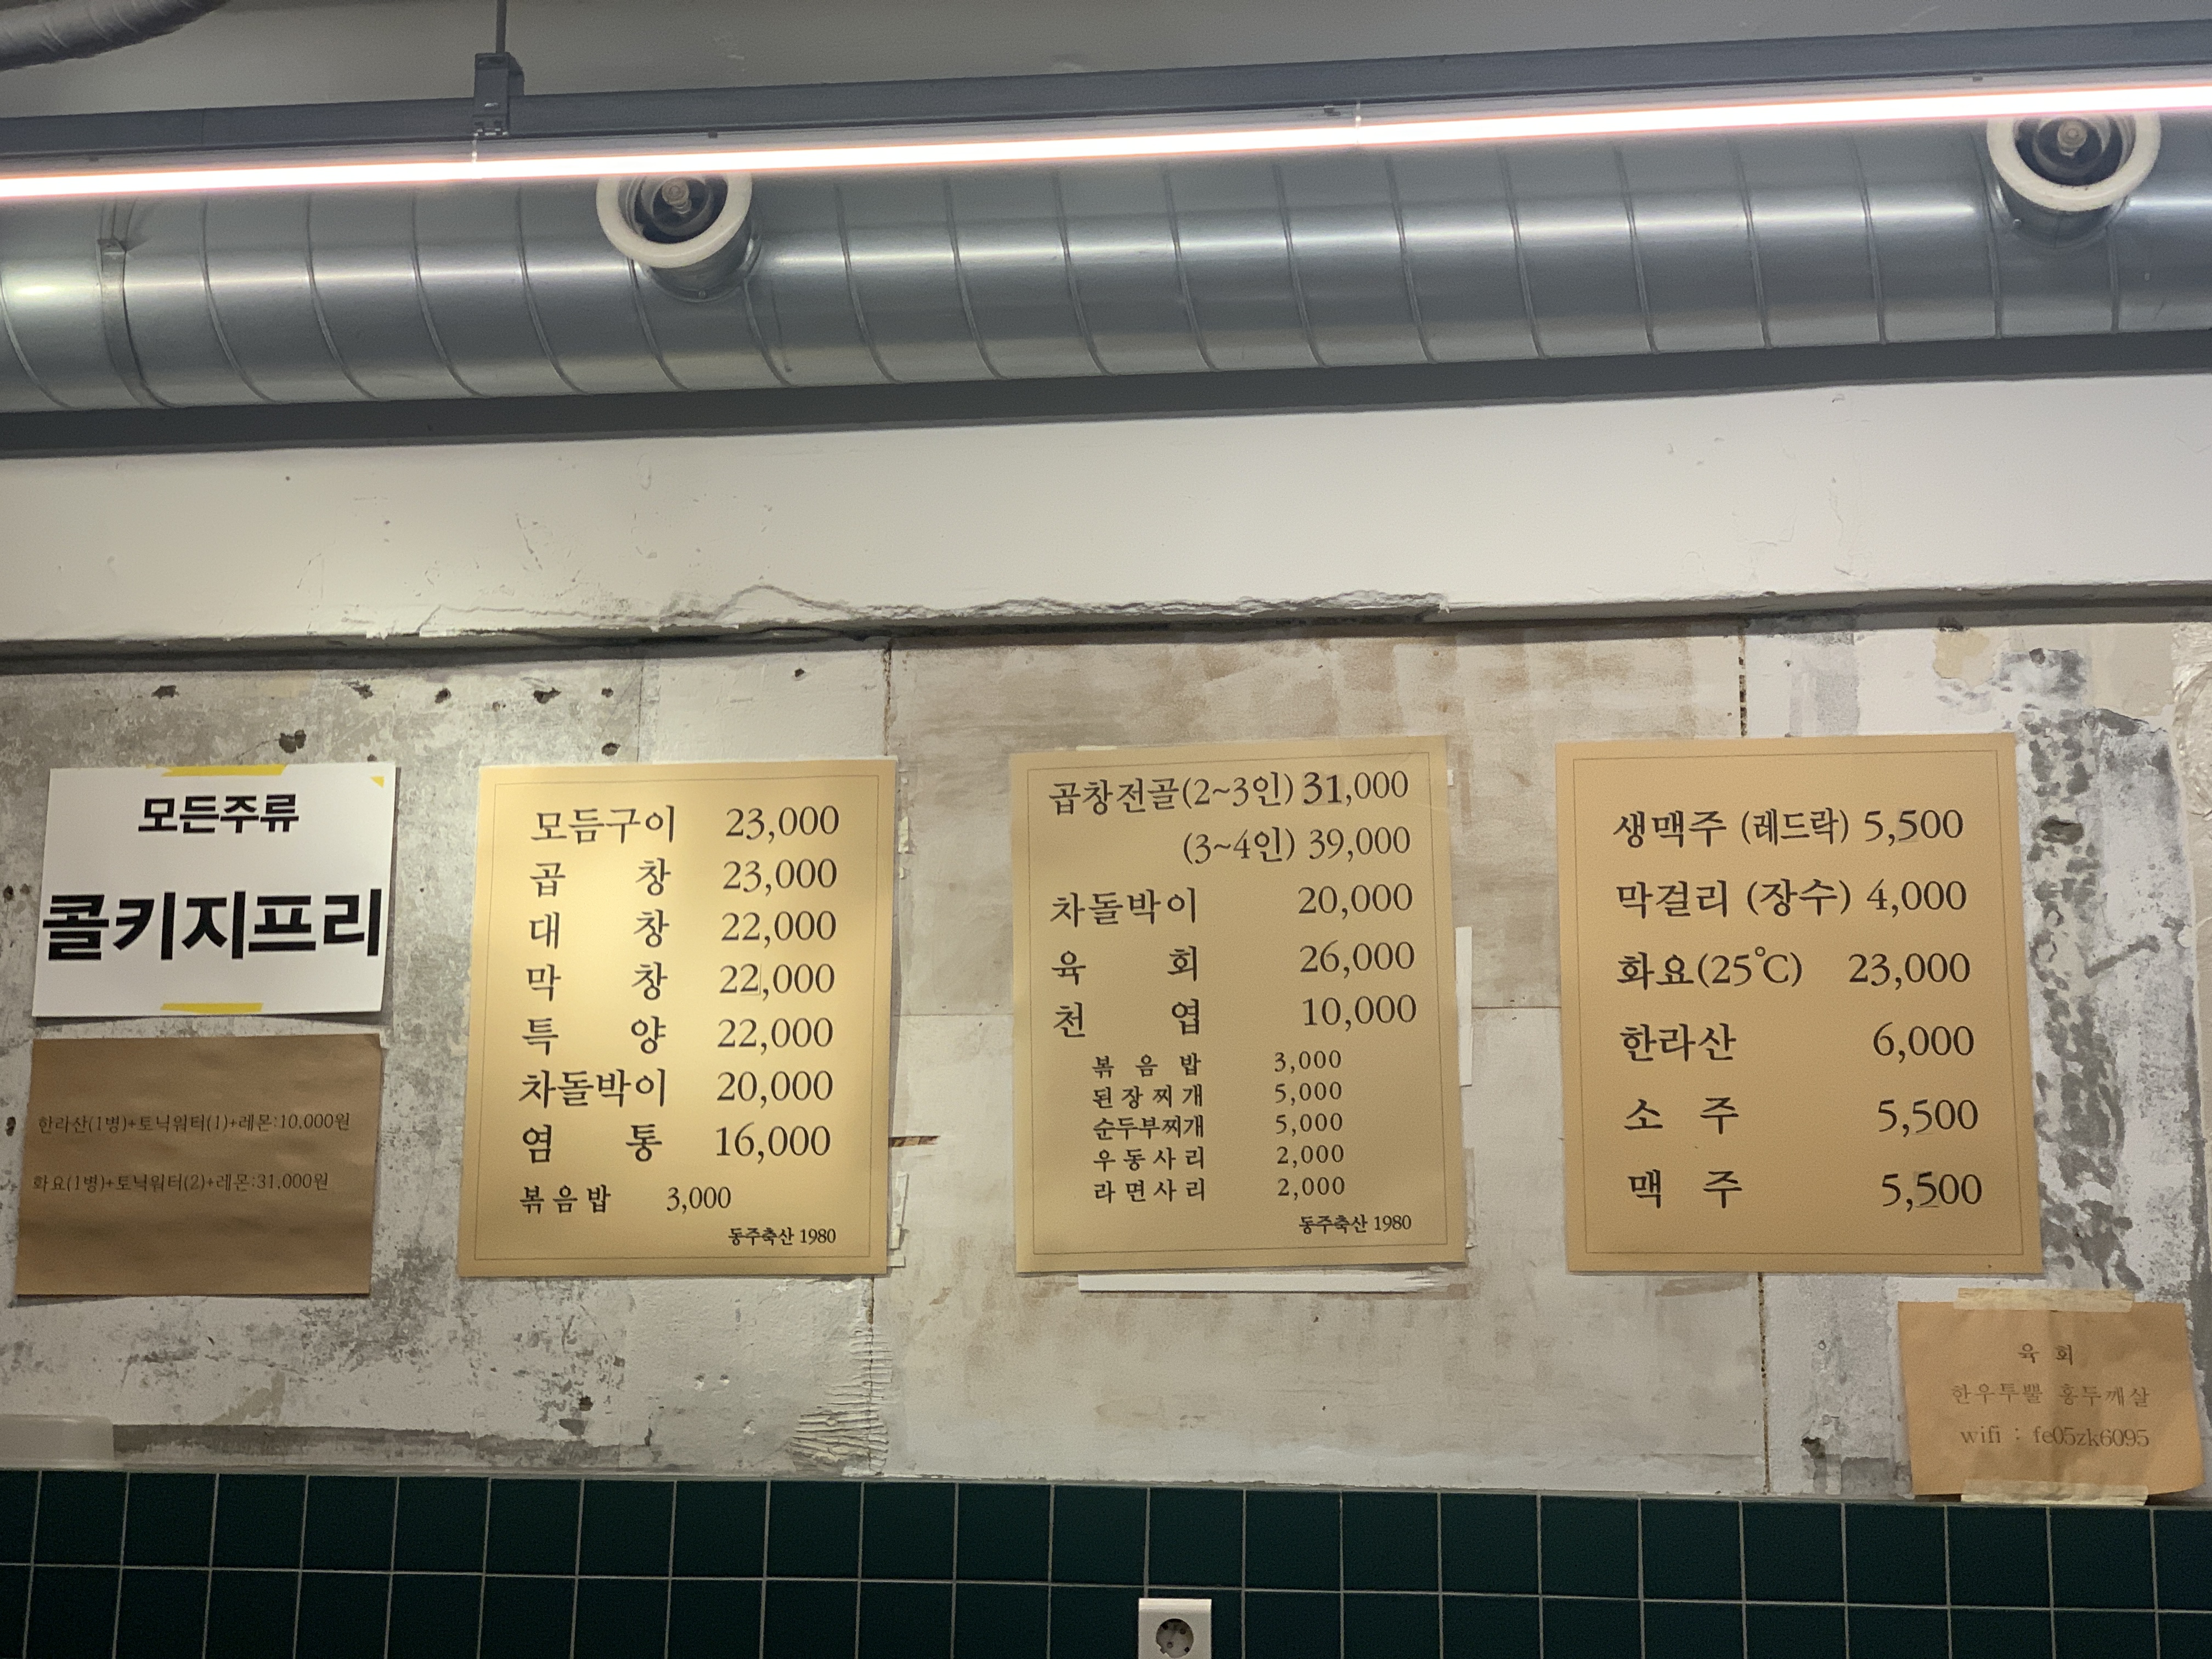 모든주류
콜키지프리
한라산(1병)+토닉워터(1)+레몬:10,000원
화요(1병)+토닉워터(2)+레몬:31,000원
모듬구이 23,000
곱 창 23,000
대 창 22,000
막 창 22,000
특 양 22,000
차돌박이 20,000
염 통 16,000
볶음밥 3,000
동주축산 1980
곱창전골(2~3인) 31,000
(3~4인) 39,000
차돌박이 20,000
육 회 26,000
천 엽 10,000
볶 음 밥 3,000
된장찌개 5,000
순두부찌개 5,000
우동사리 2,000
라면사리 2,000
동주축산 1980
생맥주 (레드락) 5,500
막걸리 (장수) 4,000
화요(25℃) 23,000
한라산 6,000
소 주 5,500
맥 주 5,500
육 회
한우투뿔 홍두깨살
wifi : fe05zk6095